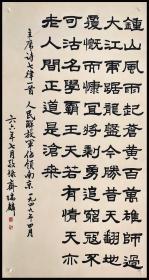 鍾山風雨起蒼黃百萬雄師過
大江虎踞龍盤今勝昔天翻地
覆慨而慷宜將剩勇追窮寇不
可沽名學霸王天若有情天亦
老人間正道是滄桑
主席詩七律一首 人民解放軍佔領南京 一九四九年四月
六六年七月敬